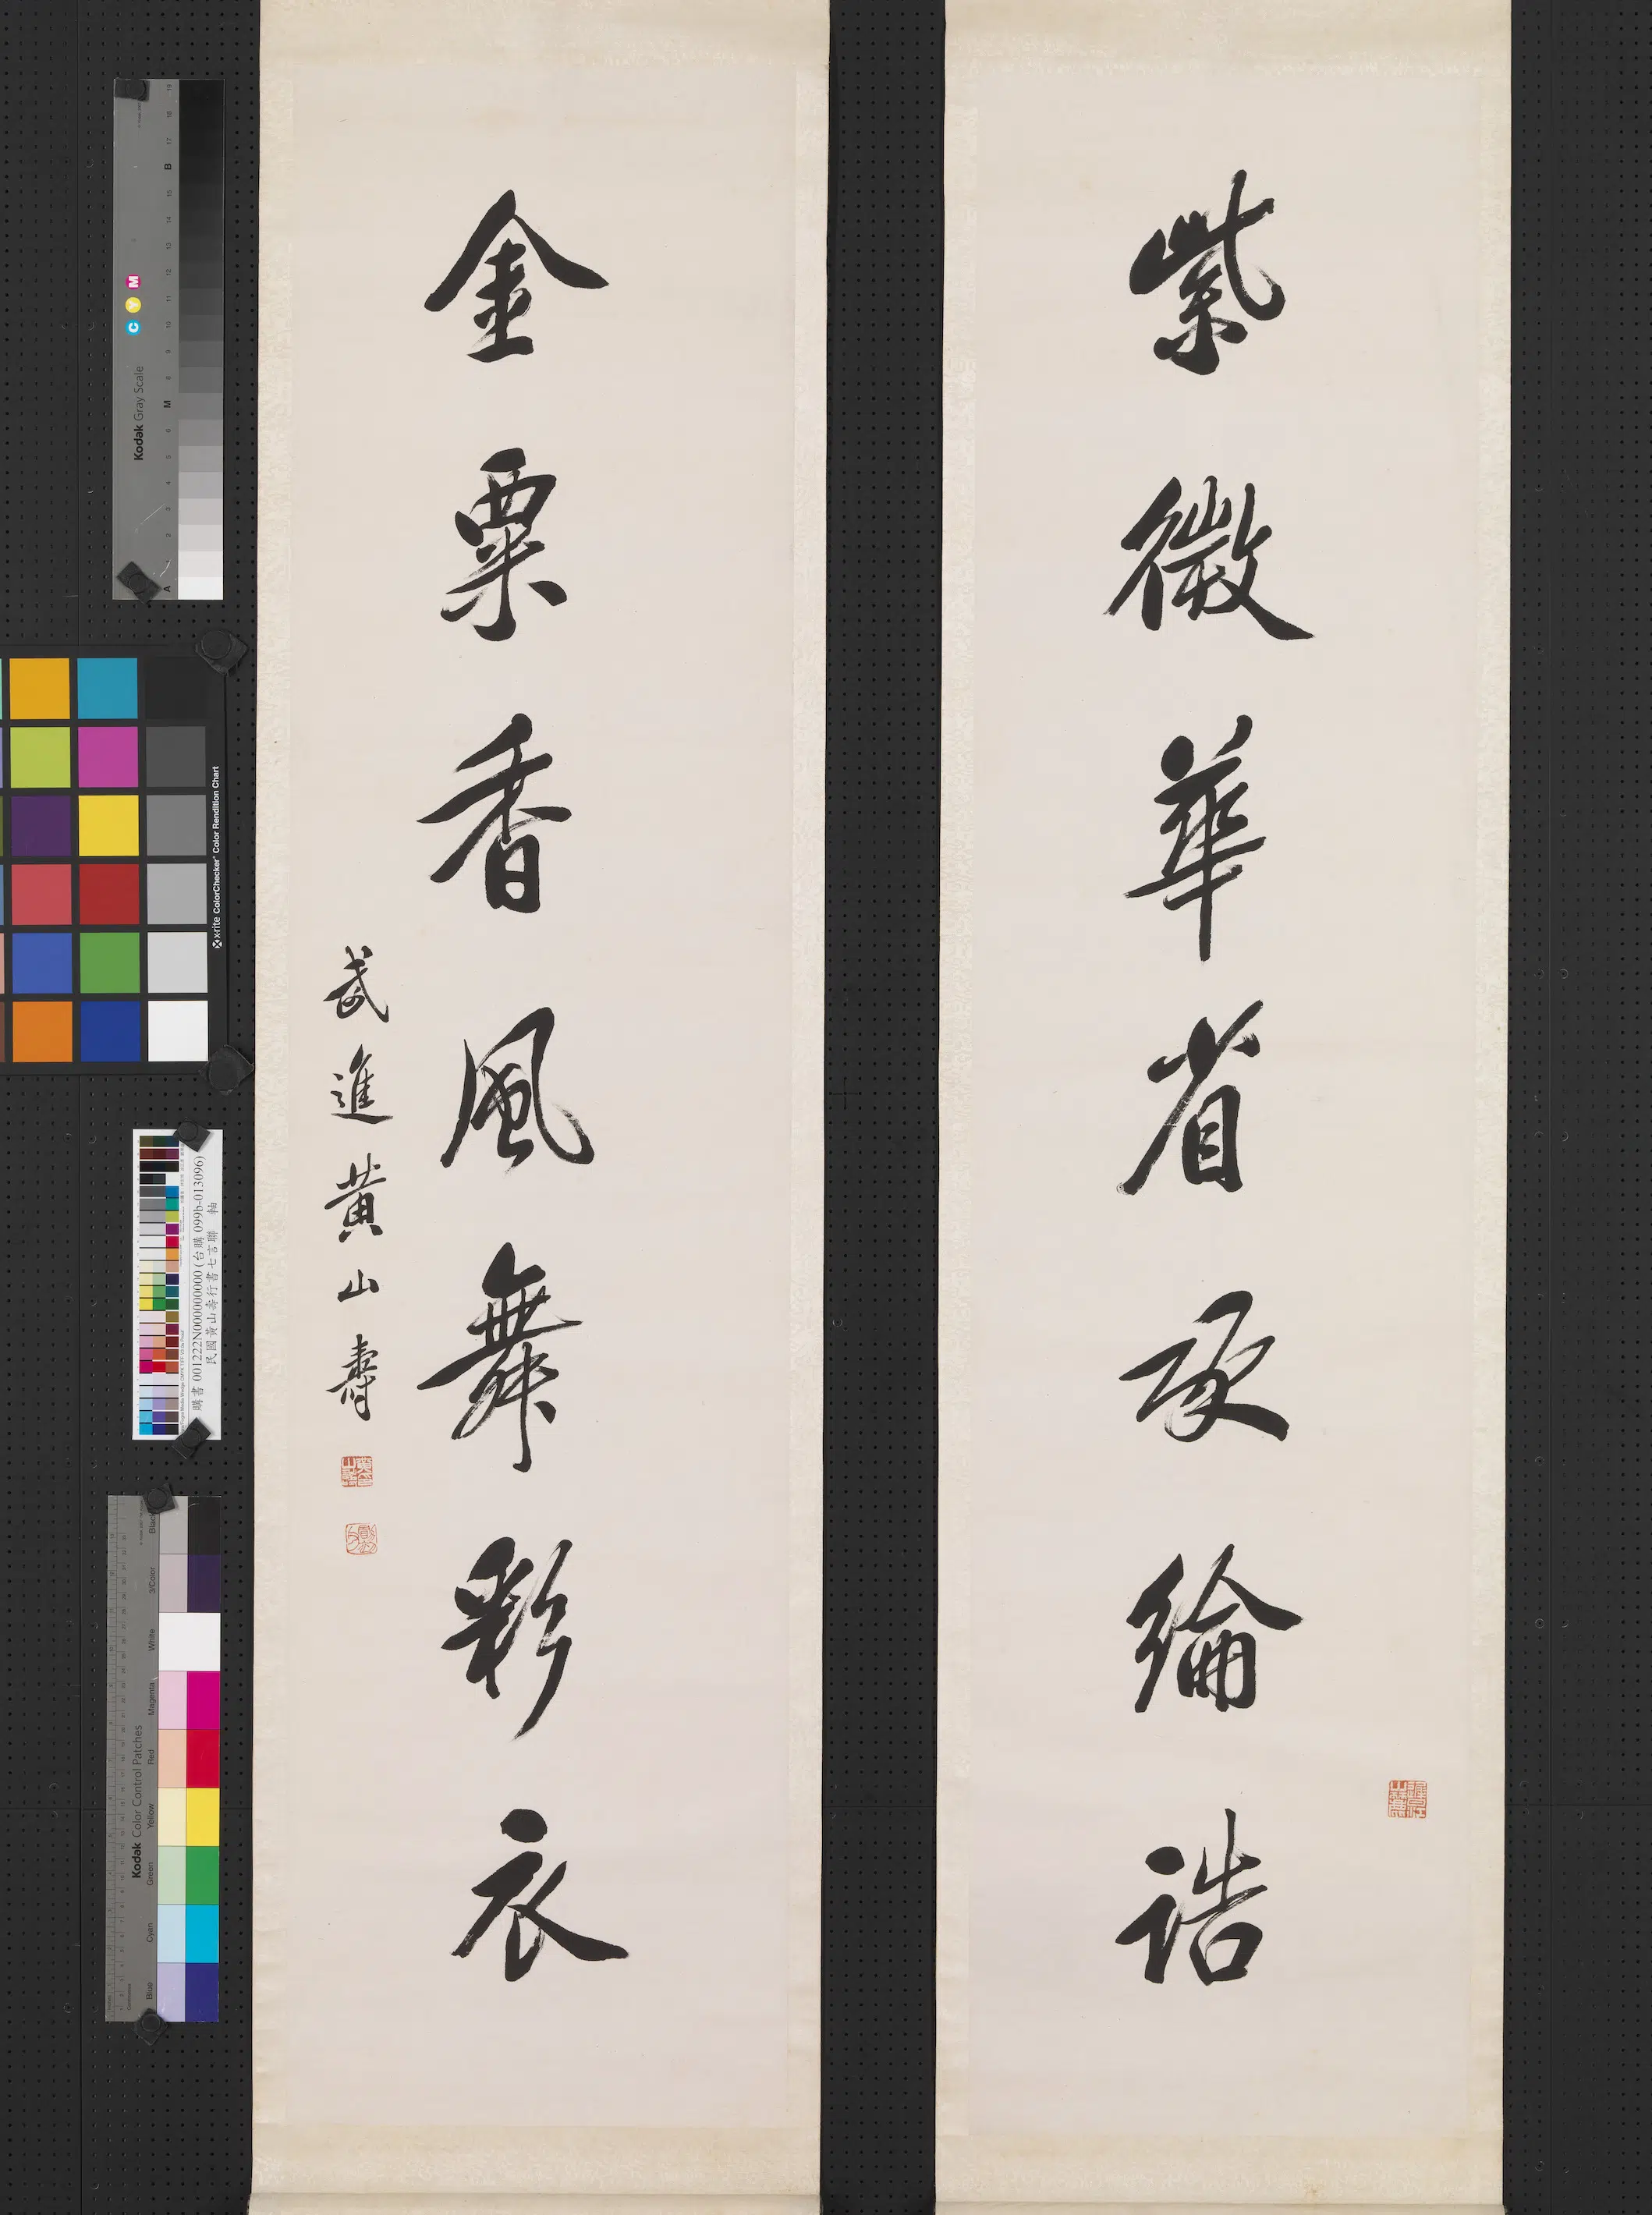 紫微華省承綸誥
金粟香風舞彩衣
武進黃山壽
Kodak Gray Scale
C Y M
A 1 2 3 4 5 6 M 8 9 10 11 12 13 14 15 B 17 18 19
x-rite ColorChecker Color Rendition Chart
購書 001222N000000000 (台購 099b-013096)
民國黃山壽行書七言聯 軸
Kodak Color Control Patches
Blue Cyan Green Yellow Red Magenta White 3/Color Black